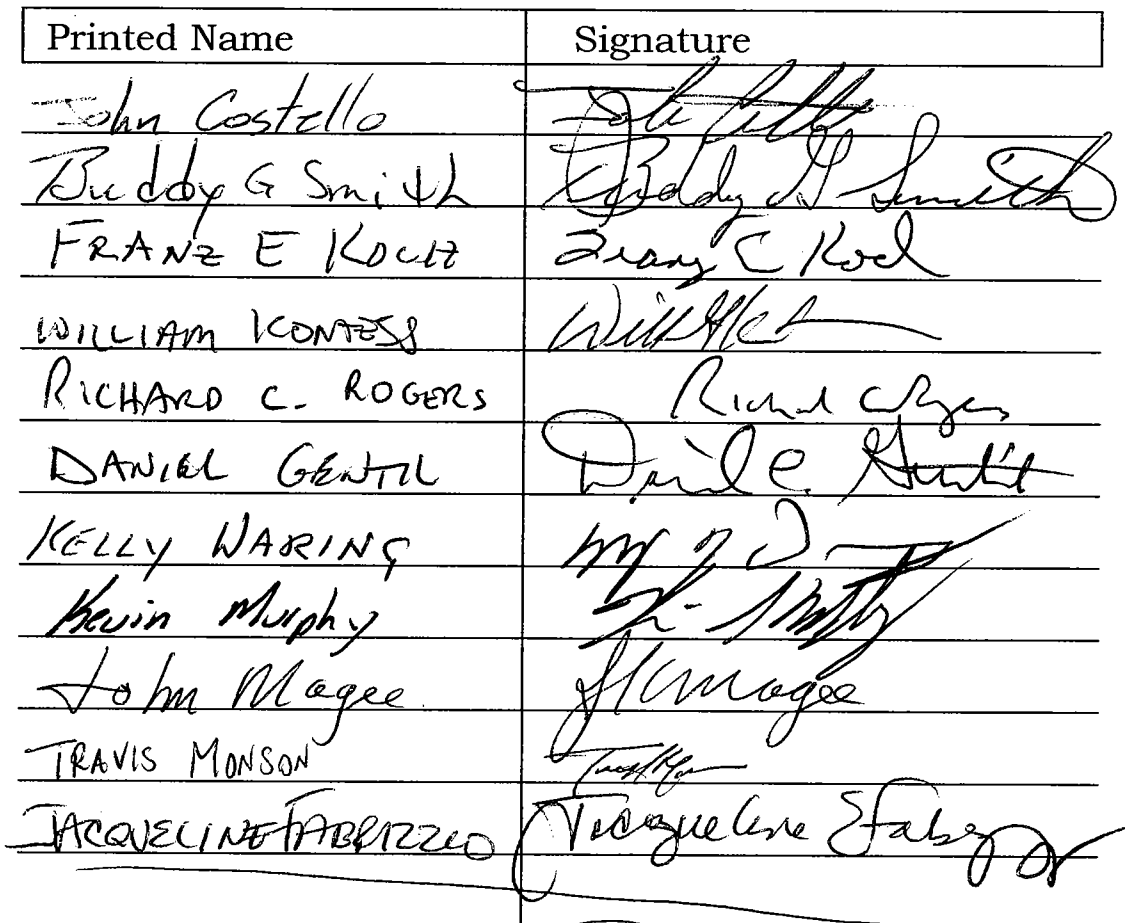 Printed Name Signature
John Costello
Buddy G Smith Buddy G Smith
FRANZ E KOCH Franz E Koch
WILLIAM
RICHARD C. ROGERS Richard C Rogers
DANIEL GENTIL Daniel C. Gentil
KELLY WARING
Kevin Murphy
John Magee JKMagee
TRAVIS MONSON
JACQUELINE FABRIZZIO Jacqueline E Fabrizio